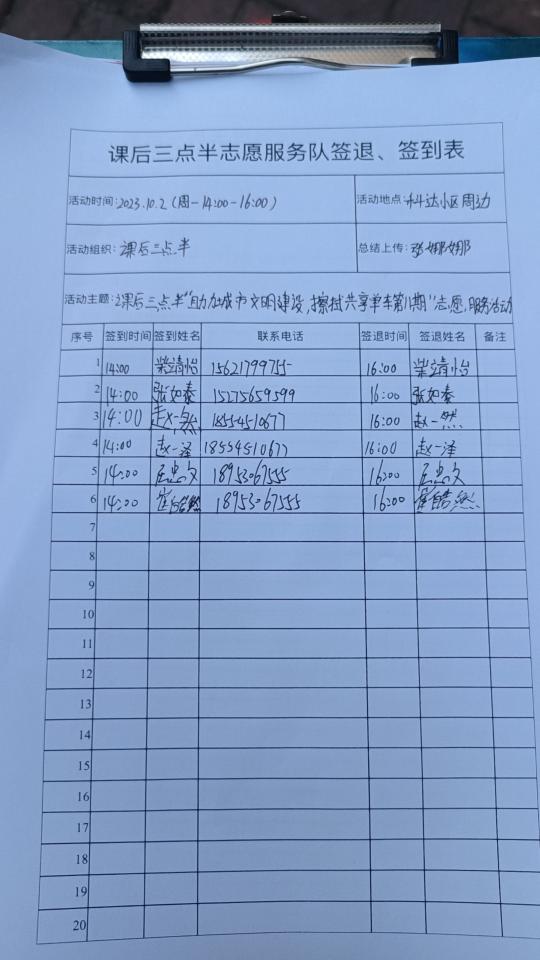 课后三点半志愿服务队签退、签到表
活动时间:2023.10.2(周一14:00-16:00) 活动地点:科达小区周边
活动组织:课后三点半 总结上传:张娜娜
活动主题:课后三点半"助力城市文明建设,擦拭共享单车第11期"志愿服务活动
序号 签到时间 签到姓名 联系电话 签退时间 签退姓名 备注
1 14:00 柴靖怡 15621799755 16:00 柴靖怡
2 14:00 张如泰 15275659599 16:00 张如泰
3 14:00 赵一然 18554510677 16:00 赵一然
4 14:00 赵一泽 18554510677 16:00 赵一泽
5 14:00 18953067555 16:00
6 14:00 崔皓然 18953067555 16:00 崔皓然
7
8
9
10
11
12
13
14
15
16
17
18
19
20